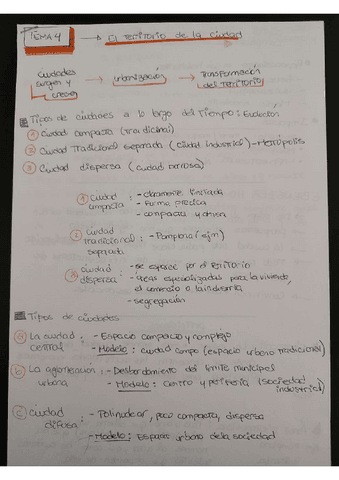 TEMA 4 → El Territorio de la Ciudad
Ciudades surgen y crecen → urbanización → Transformación del Territorio
Tipos de ciudades a lo largo del Tiempo: Evolución
1 Ciudad compacta (tradicinal)
2 Ciudad Tradicional separada (ciudad Industrial) - Metrópolis
3 Ciudad dispersa (ciudad
1 Ciudad : - claramente limitada
compacta - Forma precisa
- compacta y densa
2 Ciudad
tradicional : - Pamplona (ejm)
separada
3 Ciudad : - se expande por el territorio
dispersa - áreas especializadas para la vivienda,
el comercio o la industria
- segregación
Tipos de ciudades
a La ciudad : - Espacio compacto y complejo
central - Modelo: ciudad campo (espacio urbano tradicional)
b La aglomeración : - Desbordamiento del límite municipal
urbana - Modelo: Centro y periferia (sociedad
industrial)
c Ciudad : - Polinuclear, poco compacta, dispersa
difusa - Modelo: Espacio urbano de la sociedad